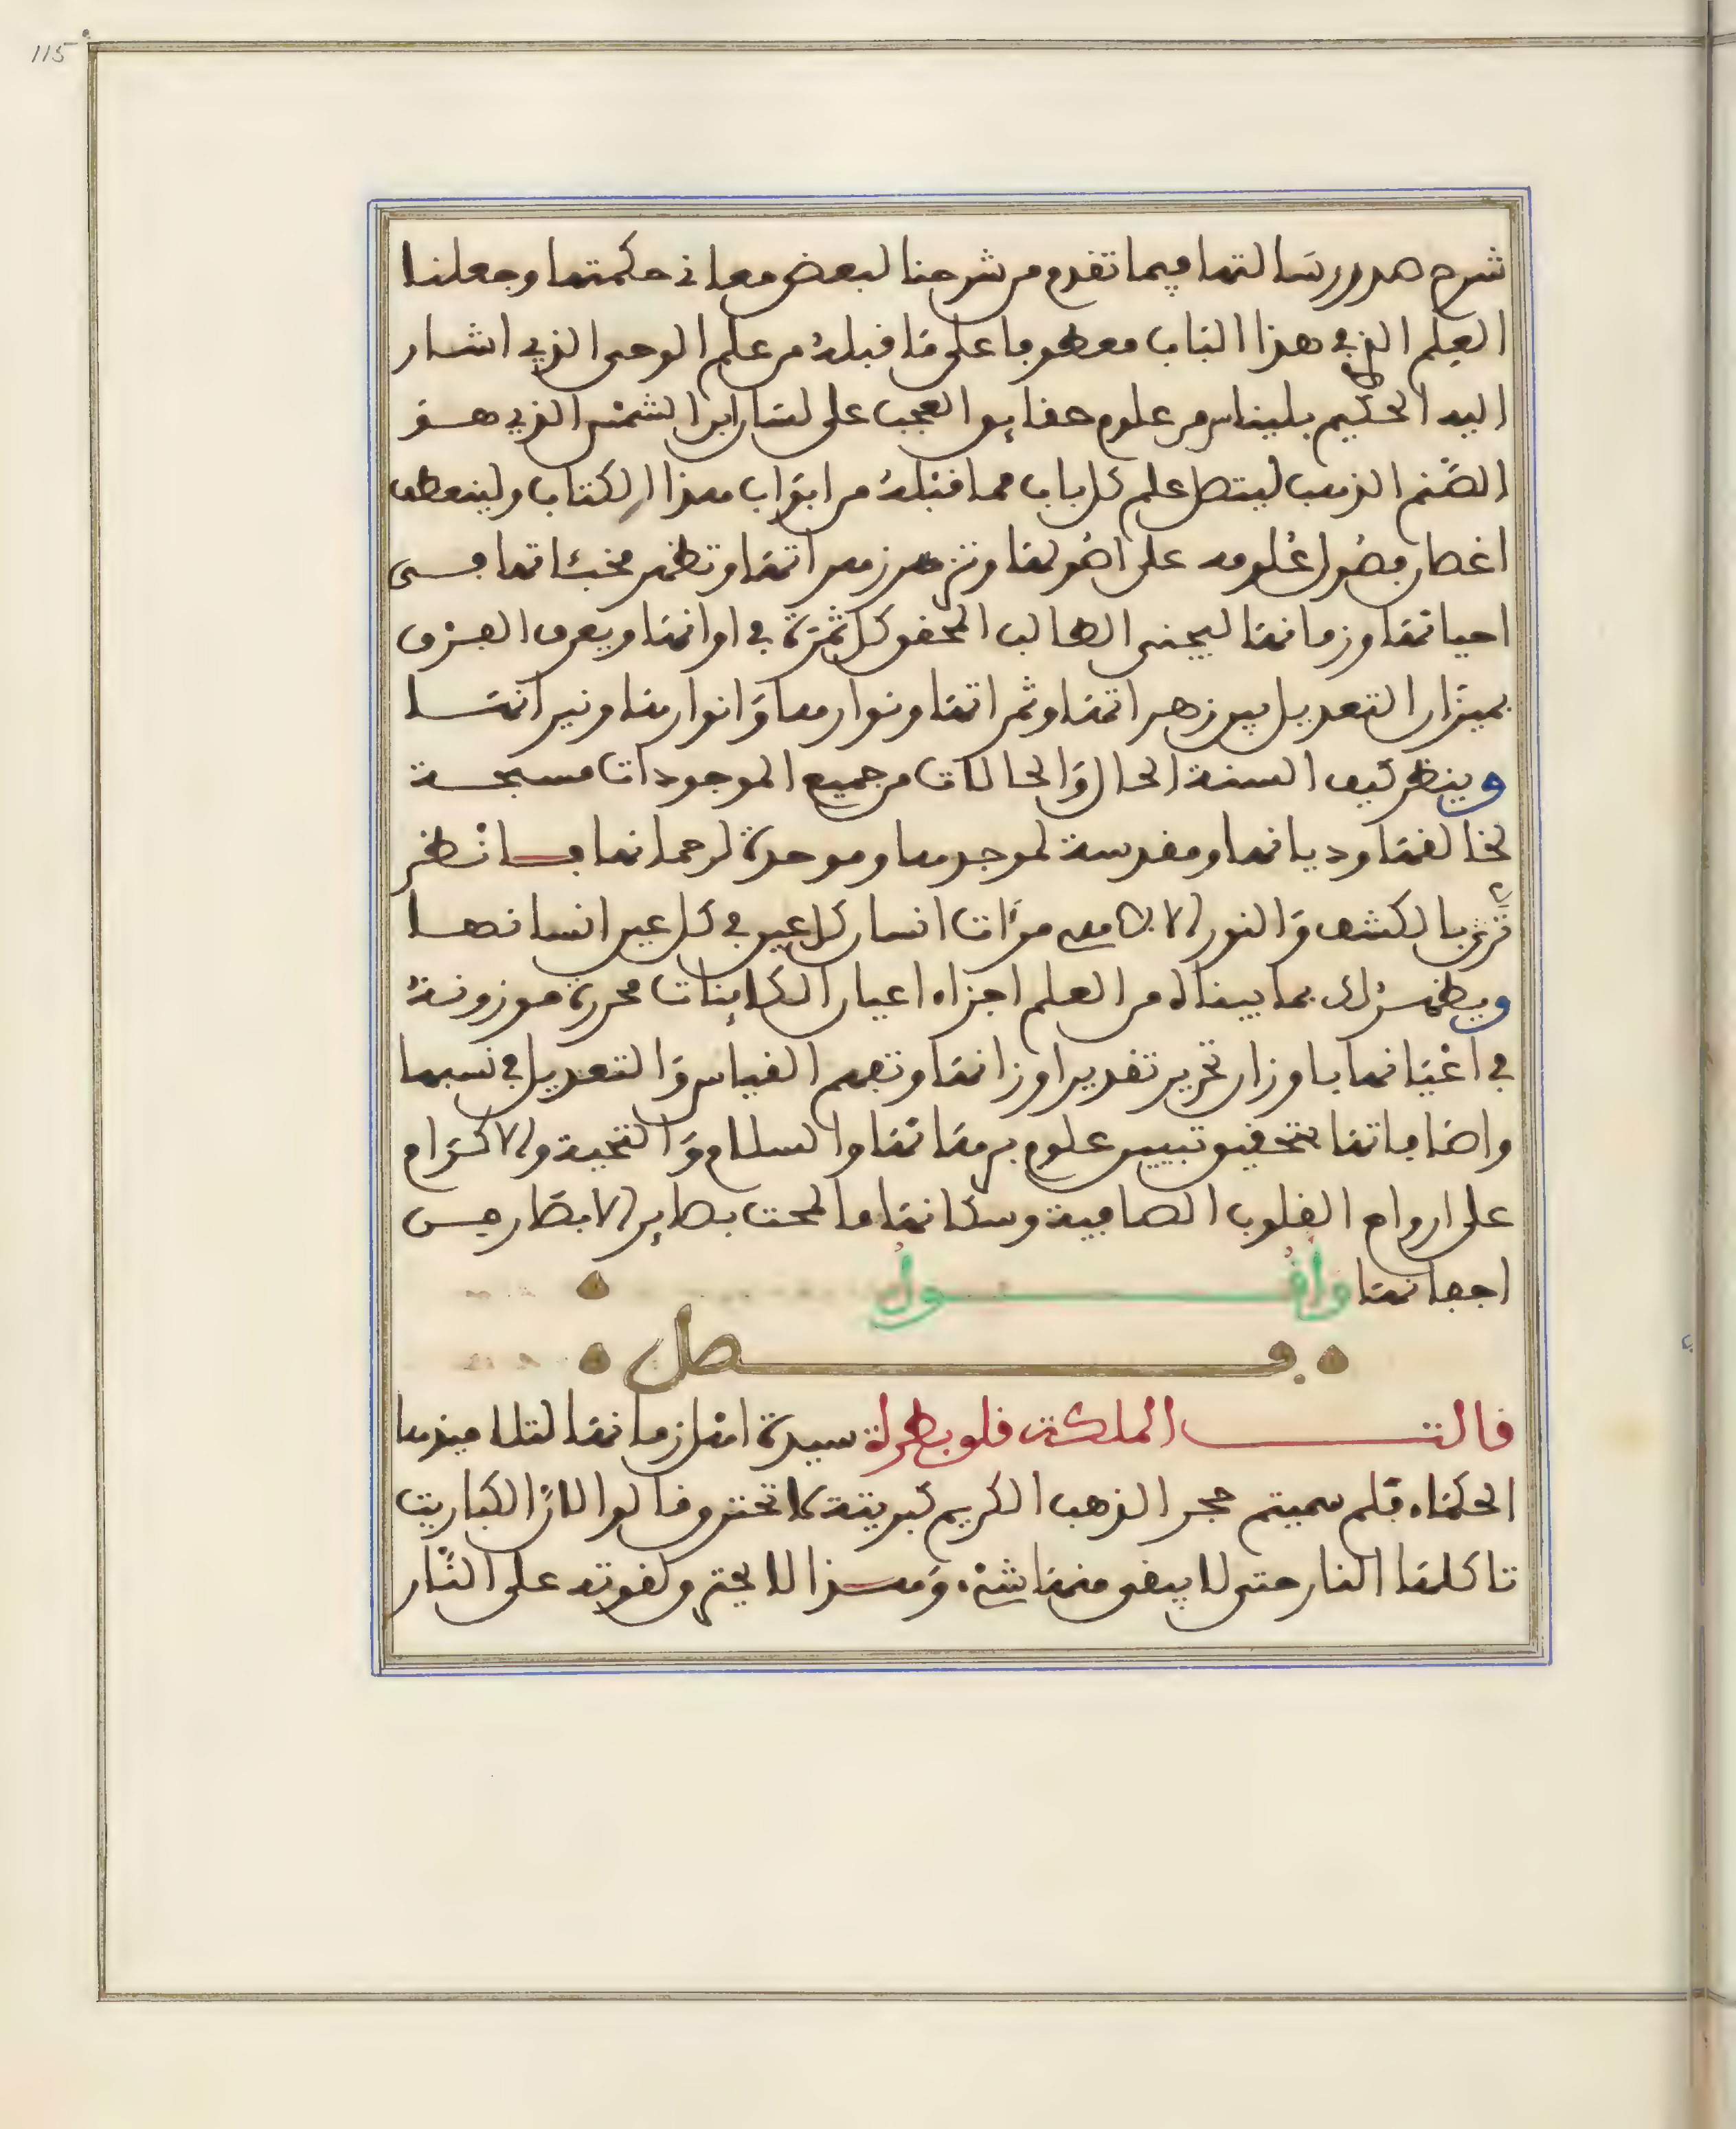 115
شرح صدور رسالتها فيما تقدم من شرحنا لبعض معاني حكمتها وجعلنا
العلم الذي في هذا الباب معطوفا على ما قبله من علم الوحي الذي اشار
اليه الحكيم بليناس من علوم حقايق العجب على لسان ابن الشمس الذي هو
الصنم الذهب ليتصل علم كل باب مما قبله من ابواب هذا الكتاب ولينعطف
اغصان فصول علومه على اصولها وتزهر زهراتها وتظهر مخبئاتها في
احيانها وزمانها ليجني الطالب المحق كل ثمرة في اوانها ويعرف الفرق
بميزان التعديل بين زهراتها وثمراتها ونوارها وانوارها ونيرانها
وينظر كيف السنة الحال والحالات من جميع الموجودات مسبحة
لخالقها وديانها ومقدسة لموجدها وموحدة لرحمانها فانظر
ترى بالكشف والنور الا مرءات انسان كل عين في كل عين انسانها
ويظهر لك بما بيناه من العلم اجزاء اعيان الكاينات محررة موزونة
في اعيانها باوزان تحرير تقدير اوزانها وتفهم القياس والتعديل في نسبها
واضافاتها بتحقيق تبيين علوم برهانها والسلام والتحية والاكرام
على ارواح القلوب الصافية وسكانها ما لمحت بصاير الابصار من
اجفانها واقول
فصل
قالت الملكة قلوبطرة سيدة اهل زمانها لتلاميذها
الحكماء فلم سميتم حجر الذهب الكريم كبريتة لا تحترق وقالوا لان الكباريت
تاكلها النار حتى لا يبقى منها شيء وهذا لا يحترق ولقوته على النار